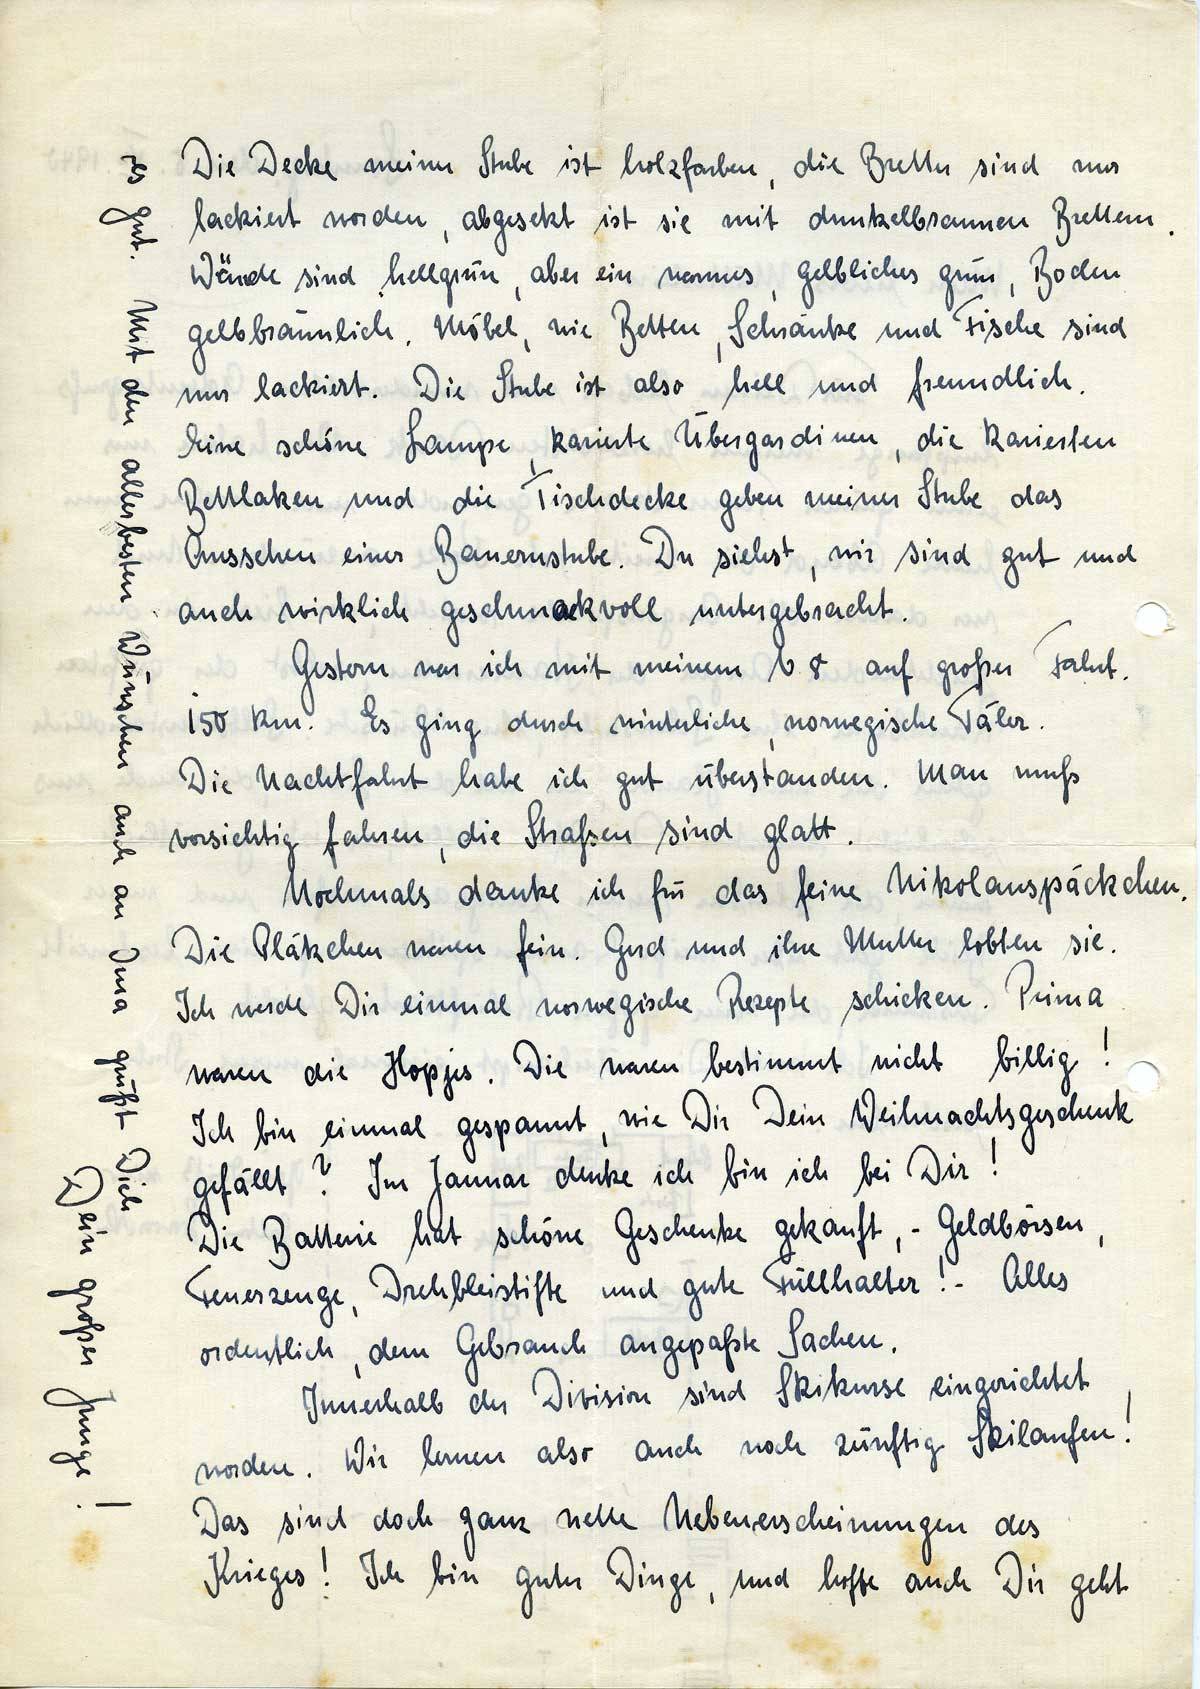 Die Decke meiner Stube ist holzfarben, die Bretter sind nur
lackiert worden, abgesetzt ist sie mit dunkelbraunen Brettern.
Wände sind hellgrün, aber ein warmes, gelbliches grün, Boden
gelbbräunlich. Möbel, wie Betten, Schränke und Tische sind
nur lackiert. Die Stube ist also hell und freundlich.
Eine schöne Lampe, karierte Übergardinen, die karierten
Bettlaken und die Tischdecke geben meiner Stube das
Aussehen einer Bauernstube. Du siehst, wir sind gut und
auch wirklich geschmackvoll untergebracht.
Gestern war ich mit meinem V 8 auf großer Fahrt.
150 km. Es ging durch winterliche, norwegische Täler.
Die Nachtfahrt habe ich gut überstanden. Man muß
vorsichtig fahren, die Straßen sind glatt.
Nochmals danke ich für das feine Nikolauspäckchen.
Die Plätzchen waren fein. Gerd und ihre Mutter lobten sie.
Ich werde Dir einmal norwegische Rezepte schicken. Prima
waren die Hopjes. Die waren bestimmt nicht billig!
Ich bin einmal gespannt, wie Dir Dein Weihnachtsgeschenk
gefällt? Im Januar denke ich bin ich bei Dir!
Die Batterie hat schöne Geschenke gekauft, - Geldbörsen,
Feuerzeuge, Drehbleistifte und gute Füllhalter! - Alles
ordentlich, dem Gebrauch angepaßte Sachen.
Innerhalb der Division sind Skikurse eingerichtet
worden. Wir lernen also auch noch zünftig Skilaufen!
Das sind doch ganz nette Nebenerscheinungen des
Krieges! Ich bin guter Dinge, und hoffe auch Dir geht
es gut. Mit den allerbesten Wünschen auch an Ima grüßt Dich
Dein großer Junge!